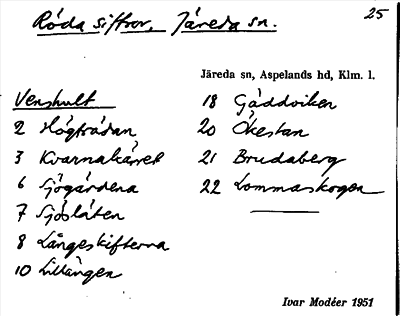 Röda siffror, Järeda sn. 25
Järeda sn, Aspelands hd, Klm. l.
Venshult
2 Högträdan
3 Kvarnakärret
6 Sjögärdena
7 Sjöslåten
8 Långeskifterna
10 Lillängen
18 Gäddviken
20 Ökestan
21 Brudaberg
22 Lommaskogen
Ivar Modéer 1951